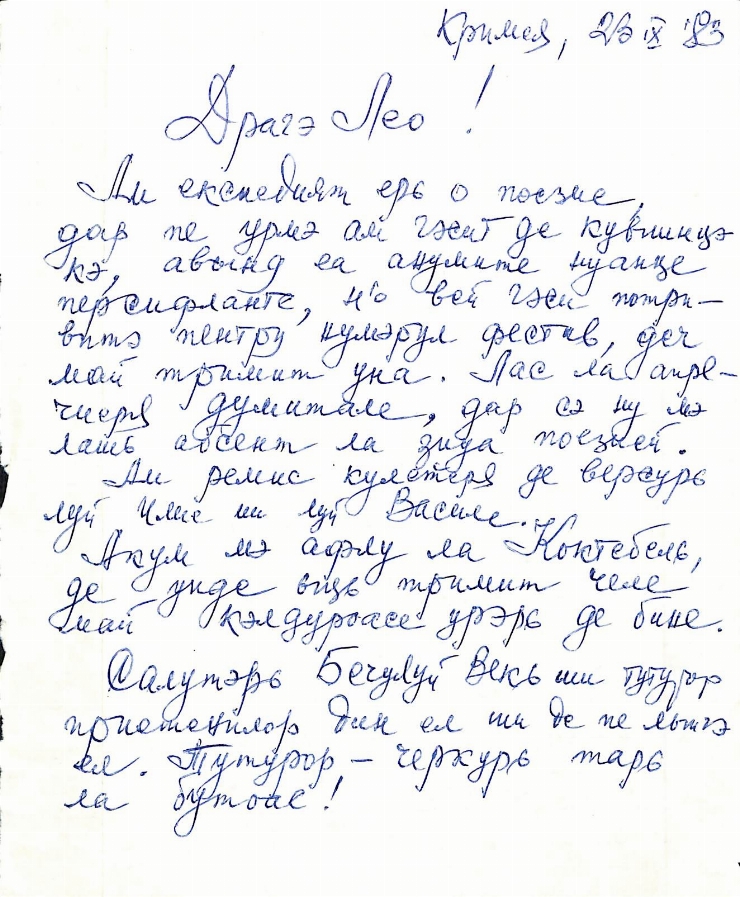 Кримея, 23 IX '83
Драгэ Лео!
Ам експедият ерь о поезие,
дар пе урмэ ам гэсит де кувиинцэ
кэ, авынд еа анумите нуанце
персифланте, н'о вей гэси потри-
витэ пентру нумэрул фестив, деч
май тримит уна. Лас ла апре-
чиеря думитале, дар сэ ну мэ
лашь абсент ла зиуа поезией.
Ам ремис кулеӂеря де версурь
луй Илие ши луй Василе.
Акум мэ афлу ла Коктебель,
де унде вэць тримит челе
май кэлдуроасе урэрь де бине.
Салутэрь Бечулуй Векь ши тутурор
приетенилор дин ел ши де пе лынгэ
ел. Тутурор – черкурь тарь
ла бутоае!